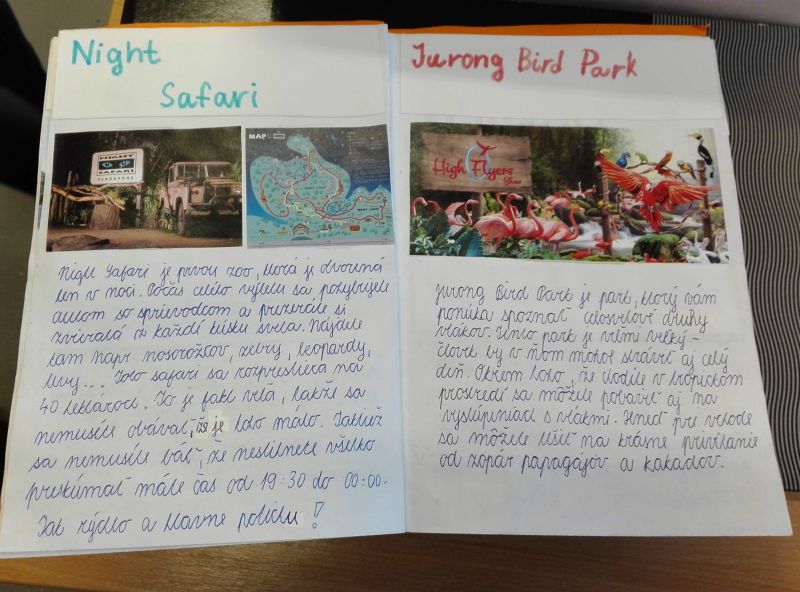 Night
Safari
NIGHT
SAFARI
SINGAPORE
MAP
Night Safari je prvou zoo, ktorá je otvorená
len v noci. Počas celého výletu sa pohybujete
autom so sprievodcom a prezeráte si
zvieratá z každého kúsku sveta. Nájdete
tam napr. nosorožcov, zebry, leopardy,
levy... Toto safari sa rozprestiera na
40 hektároch. To je fakt veľa, takže sa
nemusíte obávať, že je toho málo. Taktiež
sa nemusíte báť, že nestihnete všetko
preskúmať máte čas od 19:30 do 00:00.
Tak rýdlo a hlavne potichu!
Jurong Bird Park
High Flyers
Show
Jurong Bird Park je park, ktorý vám
ponúka spoznať celosvetové druhy
vtákov. Tento park je veľmi veľký -
človek by v ňom mohol stráviť aj celý
deň. Okrem toho, že chodíte v tropickom
prostredí sa môžete pobaviť aj na
vystúpeniach s vtákmi. Hneď pri vchode
sa môžete tešiť na krásne privítanie
od zopár papagájov a kakadov.